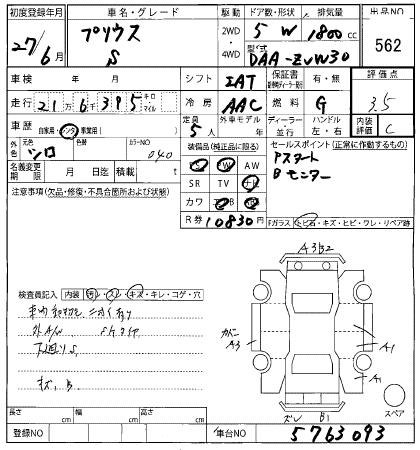 初度登録年月 車名・グレード 駆動 ドア数・形状 排気量 出品NO
27/6月 プリウス S 2WD 4WD 5 W 1800 cc 562
型式 DAA-ZVW30
車検 年 月 シフト IAT 保証書 有・無 評価点
走行 21万6千395 キロ マイル 冷房 AAC 燃料 G 3.5
車歴 自家用・レンタ・事業用( ) 定員 5人 外車モデル ディーラー 並行 ハンドル 左・右 内装評価 C
外色 元色 シロ 色替 カラーNO 040
装備品(純正品に限る) セールスポイント(正常に作動するもの)
PS PW AW
SR TV ナビ
カワ
Pスタート
Bモニター
名義変更期限 月 日迄 積載 t
R券 10830円
注意事項(欠品・修復・不具合箇所および状態)
Fガラス トビ石・キズ・ヒビ・ワレ・リペア跡
検査員記入 内装 ヨゴレ・スレ・キズ・キレ・コゲ・穴
外A/W
下廻りS
キズ、B
A3B2
カバー
A3
A1
A1
B1
スペア
長さ cm 幅 cm 高さ cm
登録NO 車台NO 5763093